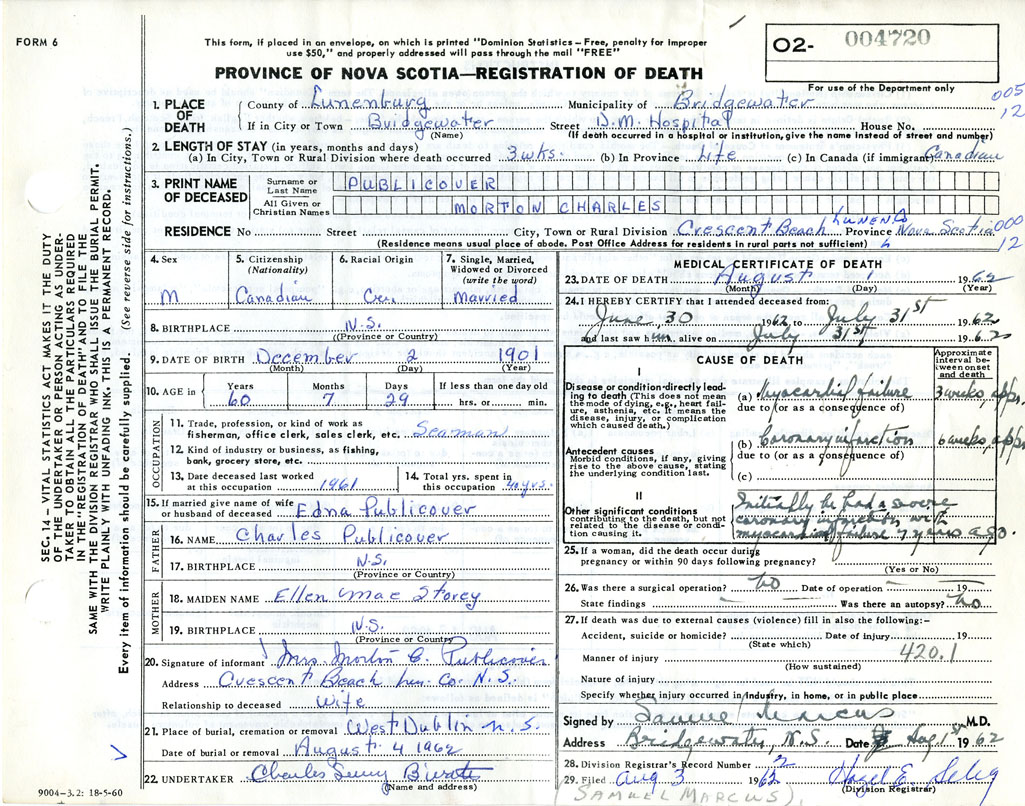 FORM 6
This form, if placed in an envelope, on which is printed "Dominion Statistics – Free, penalty for improper
use $50," and properly addressed will pass through the mail "FREE"
PROVINCE OF NOVA SCOTIA—REGISTRATION OF DEATH
O2- 004720
For use of the Department only
005
12
SEC. 14 – VITAL STATISTICS ACT MAKES IT THE DUTY
OF THE UNDERTAKER OR PERSON ACTING AS UNDER-
TAKER TO OBTAIN ALL THE PARTICULARS REQUIRED
IN THE "REGISTRATION OF DEATH" AND TO FILE THE
SAME WITH THE DIVISION REGISTRAR WHO SHALL ISSUE THE BURIAL PERMIT.
WRITE PLAINLY WITH UNFADING INK. THIS IS A PERMANENT RECORD.
Every item of information should be carefully supplied. (See reverse side for instructions.)
1. PLACE OF DEATH
County of Lunenburg Municipality of Bridgewater
If in City or Town Bridgewater Street D.M. Hospital House No.
(Name) (If death occurred in a hospital or institution, give the name instead of street and number)
2. LENGTH OF STAY (in years, months and days)
(a) In City, Town or Rural Division where death occurred 3 wks. (b) In Province Life (c) In Canada (if immigrant) Canadian
3. PRINT NAME OF DECEASED
Surname or Last Name PUBLICOVER
All Given or Christian Names MORTON CHARLES
RESIDENCE No. Street City, Town or Rural Division Crescent Beach LUNEN Co Province Nova Scotia 000
12
(Residence means usual place of abode. Post Office Address for residents in rural parts not sufficient)
4. Sex
M
5. Citizenship
(Nationality)
Canadian
6. Racial Origin
7. Single, Married,
Widowed or Divorced
(write the word)
Married
8. BIRTHPLACE N.S.
(Province or Country)
9. DATE OF BIRTH December 2 1901
(Month) (Day) (Year)
10. AGE in
Years 60
Months 7
Days 29
If less than one day old
hrs. or min.
OCCUPATION
11. Trade, profession, or kind of work as
fisherman, office clerk, sales clerk, etc. Seaman
12. Kind of industry or business, as fishing,
bank, grocery store, etc.
13. Date deceased last worked
at this occupation 1961
14. Total yrs. spent in
this occupation 40 yrs.
15. If married give name of wife
or husband of deceased Edna Publicover
FATHER
16. NAME Charles Publicover
17. BIRTHPLACE N.S.
(Province or Country)
MOTHER
18. MAIDEN NAME Ellen Mae Storey
19. BIRTHPLACE N.S.
(Province or Country)
20. Signature of informant Mrs. Morton C. Publicover
Address Crescent Beach Lun. Co. N.S.
Relationship to deceased Wife
21. Place of burial, cremation or removal West Dublin N.S.
Date of burial or removal August 4 1962
22. UNDERTAKER Charles
(Name and address)
9004-3.2: 18-5-60
MEDICAL CERTIFICATE OF DEATH
23. DATE OF DEATH August 1 1962
(Month) (Day) (Year)
24. I HEREBY CERTIFY that I attended deceased from:
June, 30 1962 to July 31st 1962
and last saw him alive on July 31st 1962
CAUSE OF DEATH
Approximate
interval be-
tween onset
and death
I
Disease or condition directly lead-
ing to death (This does not mean
the mode of dying, e.g., heart fail-
ure, asthenia, etc. It means the
disease, injury, or complication
which caused death.)
(a) Myocardial failure 3 weeks, appr.
due to (or as a consequence of)
Antecedent causes
Morbid conditions, if any, giving
rise to the above cause, stating
the underlying condition last.
(b) Coronary infarction 6 weeks, appr.
due to (or as a consequence of)
(c)
II
Other significant conditions
contributing to the death, but not
related to the disease or condi-
tion causing it.
Initially he had a severe
coronary infarction with
myocardial failure 7 years ago.
25. If a woman, did the death occur during
pregnancy or within 90 days following pregnancy?
(Yes or No)
26. Was there a surgical operation? No Date of operation 19
State findings Was there an autopsy? No
27. If death was due to external causes (violence) fill in also the following:-
Accident, suicide or homicide? Date of injury 19
(State which)
Manner of injury 420.1
(How sustained)
Nature of injury
Specify whether injury occurred in industry, in home, or in public place
Signed by Samuel Marcus M.D.
Address Bridgewater, N.S Date Aug 1st 1962
28. Division Registrar's Record Number 2
29. Filed Aug 3 1962 Hazel E. Selig
(Division Registrar)
SAMUEL MARCUS).